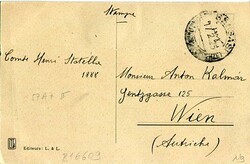 Stampe
Comte Henri Statella
1888
Monsieur Anton Kalmár
Gentzgasse 125
Wien
(Autriche)
Editeurs: L. & L.